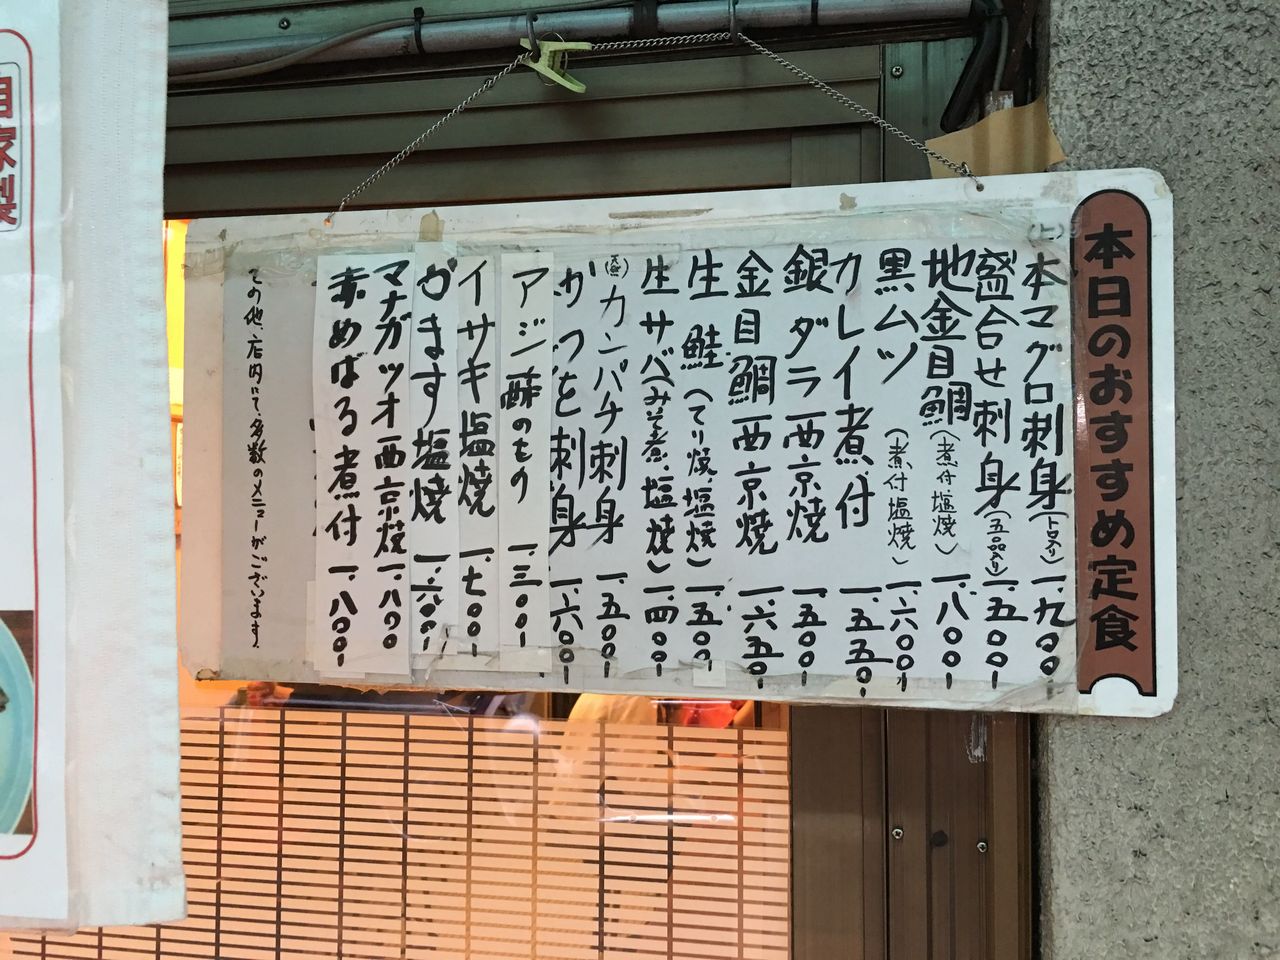 本日のおすすめ定食
(上)本マグロ刺身(トロ入り)一、九〇〇
盛合せ刺身(五品入り)一、五〇〇-
地金目鯛(煮付塩焼)一、八〇〇-
黒ムツ(煮付塩焼)一、六〇〇-
カレイ煮付一、五五〇-
銀ダラ西京焼一、五〇〇-
金目鯛西京焼一、六五〇-
生鮭(てり焼、塩焼)一、五〇〇-
生サバ(みそ煮、塩焼)一、四〇〇-
(天然)カンパチ刺身一、五〇〇-
かつを刺身一、六〇〇-
アジ酢のもの一、三〇〇-
イサキ塩焼一、七〇〇-
かます塩焼一、六〇〇-
マナガツオ西京焼一、八〇〇
赤めばる煮付一、八〇〇-
その他、店内にて多数のメニューがございます。
自家製